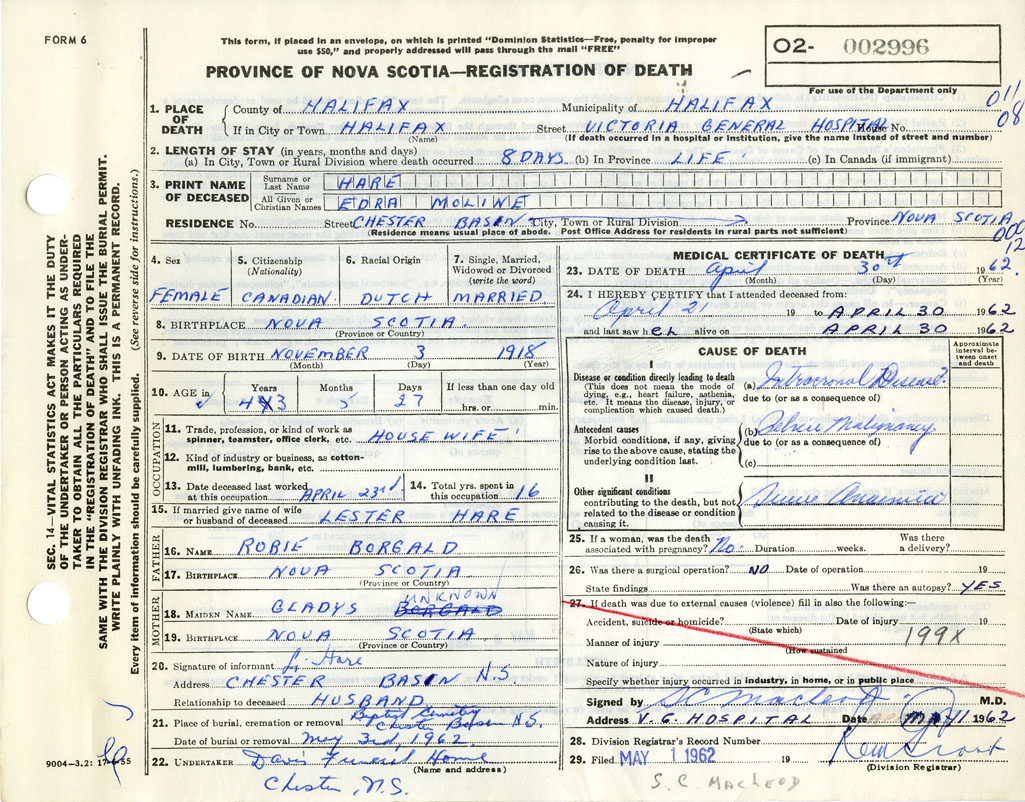 FORM 6
This form, if placed in an envelope, on which is printed "Dominion Statistics—Free, penalty for improper
use $50," and properly addressed will pass through the mail "FREE"
PROVINCE OF NOVA SCOTIA—REGISTRATION OF DEATH
02- 002996
For use of the Department only
SEC. 14—VITAL STATISTICS ACT MAKES IT THE DUTY
OF THE UNDERTAKER OR PERSON ACTING AS UNDER-
TAKER TO OBTAIN ALL THE PARTICULARS REQUIRED
IN THE "REGISTRATION OF DEATH" AND TO FILE THE
SAME WITH THE DIVISION REGISTRAR WHO SHALL ISSUE THE BURIAL PERMIT.
WRITE PLAINLY WITH UNFADING INK. THIS IS A PERMANENT RECORD.
Every item of information should be carefully supplied. (See reverse side for instructions.)
1. PLACE OF DEATH County of HALIFAX Municipality of HALIFAX 011
If in City or Town HALIFAX Street VICTORIA GENERAL HOSPITAL House No. 08
(Name) (If death occurred in a hospital or institution, give the name instead of street and number)
2. LENGTH OF STAY (in years, months and days)
(a) In City, Town or Rural Division where death occurred 8 DAYS (b) In Province LIFE (c) In Canada (if immigrant)
3. PRINT NAME OF DECEASED
Surname or Last Name HARE
All Given or Christian Names EDRA MOLINE
RESIDENCE No. Street CHESTER BASIN City, Town or Rural Division Province NOVA SCOTIA
(Residence means usual place of abode. Post Office Address for residents in rural parts not sufficient)
4. Sex FEMALE
5. Citizenship (Nationality) CANADIAN
6. Racial Origin DUTCH
7. Single, Married, Widowed or Divorced (write the word) MARRIED
8. BIRTHPLACE NOVA SCOTIA
(Province or Country)
9. DATE OF BIRTH NOVEMBER 3 1918
(Month) (Day) (Year)
10. AGE in Years 43 Months 5 Days 27 If less than one day old hrs. or min.
OCCUPATION
11. Trade, profession, or kind of work as spinner, teamster, office clerk, etc. HOUSEWIFE
12. Kind of industry or business, as cotton-mill, lumbering, bank, etc.
13. Date deceased last worked at this occupation APRIL 23rd 14. Total yrs. spent in this occupation 16
15. If married give name of wife or husband of deceased LESTER HARE
FATHER
16. NAME ROBIE BORGALD
17. BIRTHPLACE NOVA SCOTIA
(Province or Country)
MOTHER
18. MAIDEN NAME GLADYS BORGALD UNKNOWN
19. BIRTHPLACE NOVA SCOTIA
(Province or Country)
20. Signature of informant L. Hare
Address CHESTER BASIN N.S.
Relationship to deceased HUSBAND
21. Place of burial, cremation or removal Baptist Cemetry Chester Basin N.S.
Date of burial or removal May 3rd, 1962.
22. UNDERTAKER Davis Funeral Home
(Name and address)
Chester, N.S.
9004-3.2: 17-6-55
MEDICAL CERTIFICATE OF DEATH
23. DATE OF DEATH April 30th 1962.
(Month) (Day) (Year)
24. I HEREBY CERTIFY that I attended deceased from:
April 21 19 to APRIL 30 1962
and last saw her alive on APRIL 30 1962
CAUSE OF DEATH
Approximate interval between onset and death
I
Disease or condition directly leading to death
(This does not mean the mode of dying, e.g., heart failure, asthenia, etc. It means the disease, injury, or complication which caused death.)
(a) Disease
due to (or as a consequence of)
Antecedent causes
Morbid conditions, if any, giving rise to the above cause, stating the underlying condition last.
(b) Pelvic Malignancy
due to (or as a consequence of)
(c)
II
Other significant conditions
contributing to the death, but not related to the disease or condition causing it.
25. If a woman, was the death associated with pregnancy? No Duration weeks. Was there a delivery?
26. Was there a surgical operation? NO Date of operation 19
State findings Was there an autopsy? YES
27. If death was due to external causes (violence) fill in also the following:—
Accident, suicide or homicide? Date of injury 19
(State which)
Manner of injury 199X
(How sustained
Nature of injury
Specify whether injury occurred in industry, in home, or in public place
Signed by S C Macleod M.D.
Address V. G. HOSPITAL Date MAY 1 1962
28. Division Registrar's Record Number
29. Filed MAY 1 1962 19
(Division Registrar)
S. C. MacLeod